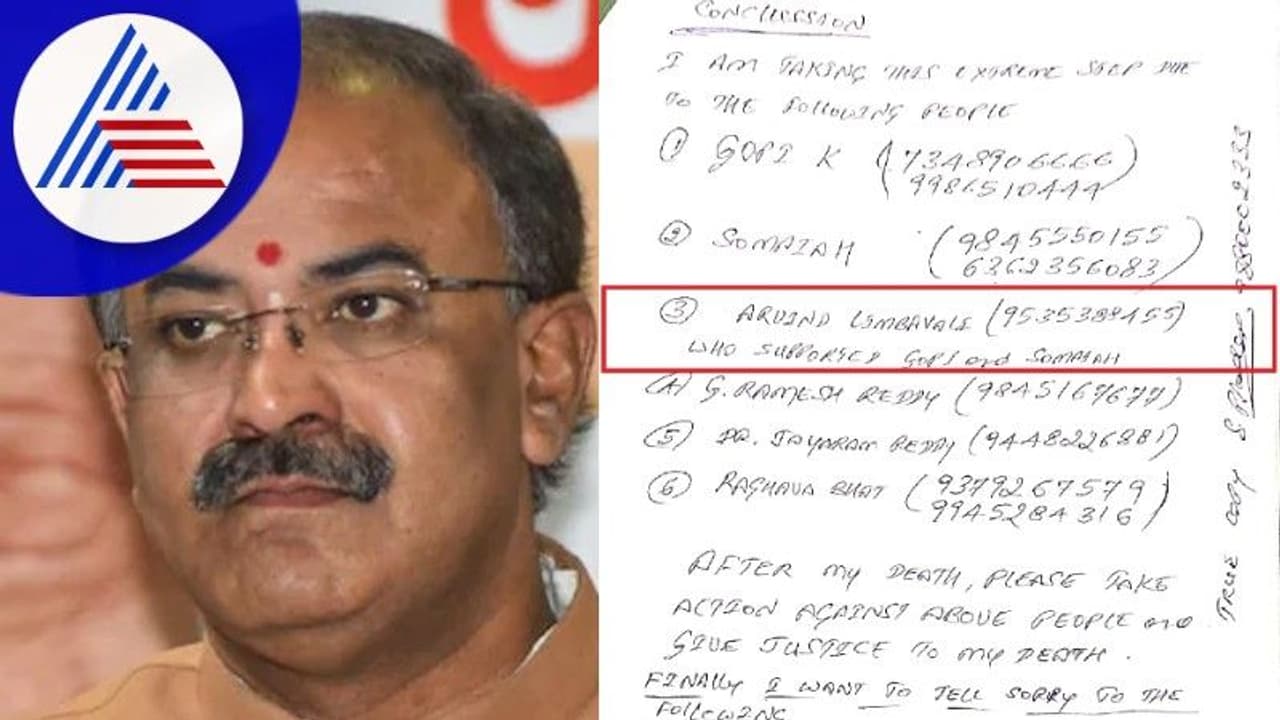 CONCLUSSION
I AM TAKING THIS EXTREME STEP DUE
TO THE FOLLOWING PEOPLE
① GOPI K (7348906666
9986510444)
② SOMAIAH (9845550155
6362356083)
③ ARVIND LIMBAVALI (9535389455)
WHO SUPPORTED GOPI and SOMAIAH
(4) G. RAMESH REDDY (9845167677)
⑤ DR. JAYARAM REDDY (9448226881)
⑥ RAGHAVA BHAT (9379267579
9945284316)
AFTER my DEATH, PLEASE TAKE
ACTION AGAINST ABOVE PEOPLE and
GIVE JUSTICE TO my DEATH.
FINALLY I WANT TO TELL SORRY TO THE
FOLLOWING
TRUE COPY